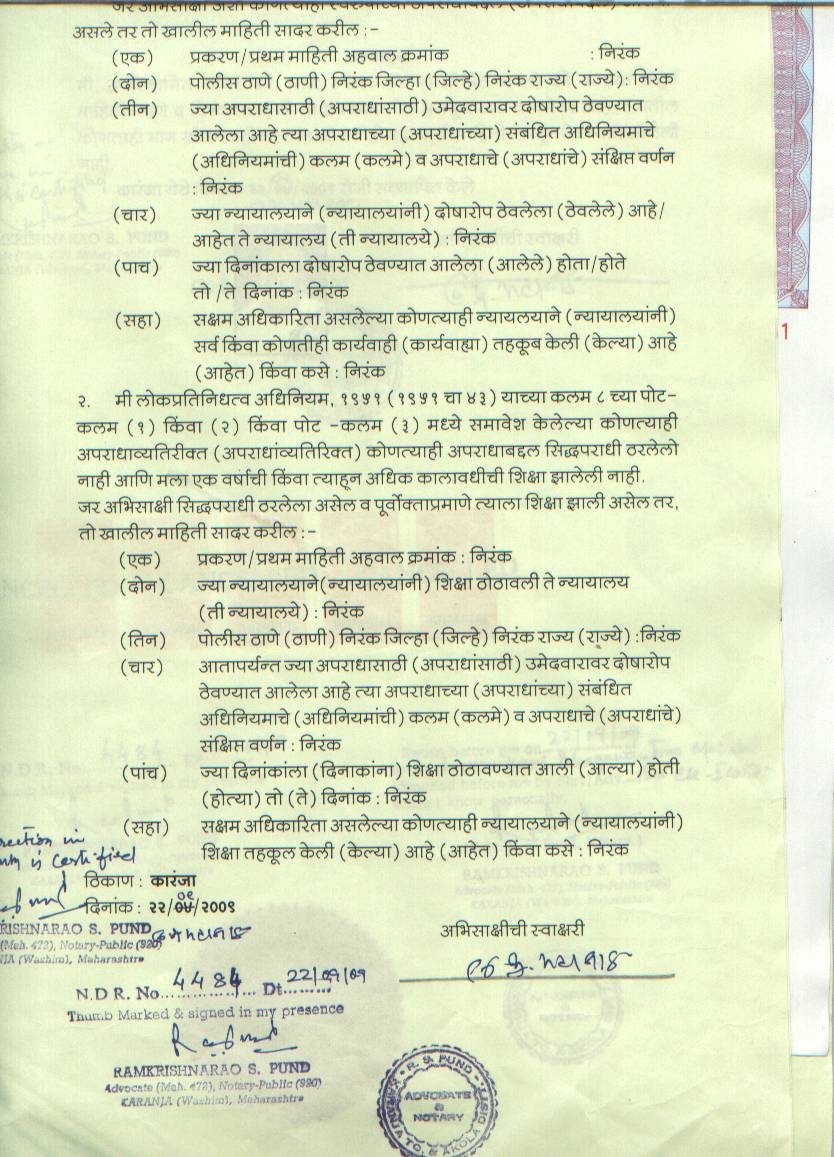 असले तर तो खालील माहिती सादर करील :-
(एक) प्रकरण/प्रथम माहिती अहवाल क्रमांक : निरंक
(दोन) पोलीस ठाणे (ठाणी) निरंक जिल्हा (जिल्हे) निरंक राज्य (राज्ये): निरंक
(तीन) ज्या अपराधासाठी (अपराधांसाठी) उमेदवारावर दोषारोप ठेवण्यात
आलेला आहे त्या अपराधाच्या (अपराधांच्या) संबंधित अधिनियमाचे
(अधिनियमांची) कलम (कलमे) व अपराधाचे (अपराधांचे) संक्षिप्त वर्णन
: निरंक
(चार) ज्या न्यायालयाने (न्यायालयांनी) दोषारोप ठेवलेला (ठेवलेले) आहे/
आहेत ते न्यायालय (ती न्यायालये) : निरंक
(पाच) ज्या दिनांकाला दोषारोप ठेवण्यात आलेला (आलेले) होता/होते
तो /ते दिनांक : निरंक
(सहा) सक्षम अधिकारिता असलेल्या कोणत्याही न्यायलयाने (न्यायालयांनी)
सर्व किंवा कोणतीही कार्यवाही (कार्यवाह्या) तहकूब केली (केल्या) आहे
(आहेत) किंवा कसे : निरंक
1
२. मी लोकप्रतिनिधत्व अधिनियम, १९५१ (१९५१ चा ४३) याच्या कलम ८ च्या पोट-
कलम (१) किंवा (२) किंवा पोट -कलम (३) मध्ये समावेश केलेल्या कोणत्याही
अपराधाव्यतिरीक्त (अपराधांव्यतिरिक्त) कोणत्याही अपराधाबद्दल सिद्धपराधी ठरलेलो
नाही आणि मला एक वर्षाची किंवा त्याहून अधिक कालावधीची शिक्षा झालेली नाही.
जर अभिसाक्षी सिद्धपराधी ठरलेला असेल व पूर्वोक्ताप्रमाणे त्याला शिक्षा झाली असेल तर,
तो खालील माहिती सादर करील :-
(एक) प्रकरण/प्रथम माहिती अहवाल क्रमांक : निरंक
(दोन) ज्या न्यायालयाने(न्यायालयांनी) शिक्षा ठोठावली ते न्यायालय
(ती न्यायालये) : निरंक
(तिन) पोलीस ठाणे (ठाणी) निरंक जिल्हा (जिल्हे) निरंक राज्य (राज्ये) :निरंक
(चार) आतापर्यन्त ज्या अपराधासाठी (अपराधांसाठी) उमेदवारावर दोषारोप
ठेवण्यात आलेला आहे त्या अपराधाच्या (अपराधांच्या) संबंधित
अधिनियमाचे (अधिनियमांची) कलम (कलमे) व अपराधाचे (अपराधांचे)
संक्षिप्त वर्णन : निरंक
(पांच) ज्या दिनांकांला (दिनाकांना) शिक्षा ठोठावण्यात आली (आल्या) होती
(होत्या) तो (ते) दिनांक : निरंक
(सहा) सक्षम अधिकारिता असलेल्या कोणत्याही न्यायालयाने (न्यायालयांनी)
शिक्षा तहकूल केली (केल्या) आहे (आहेत) किंवा कसे : निरंक
is certified
ठिकाण : कारंजा
दिनांक : २२/०९/२००९
RISHNARAO S. PUND
(Mah. 472), Notary-Public (920)
JA (Washim), Maharashtra
अभिसाक्षीची स्वाक्षरी
N.D R. No. 4484 Dt. 22/09/09
Thumb Marked & signed in my presence
RAMKRISHNARAO S. PUND
Advocate (Mah. 472), Notary-Public (920)
KARANJA (Washim), Maharashtra
R. S. PUND
ADVOCATE
&
NOTARY
KARANJA TQ. & AKOLA DISTT.